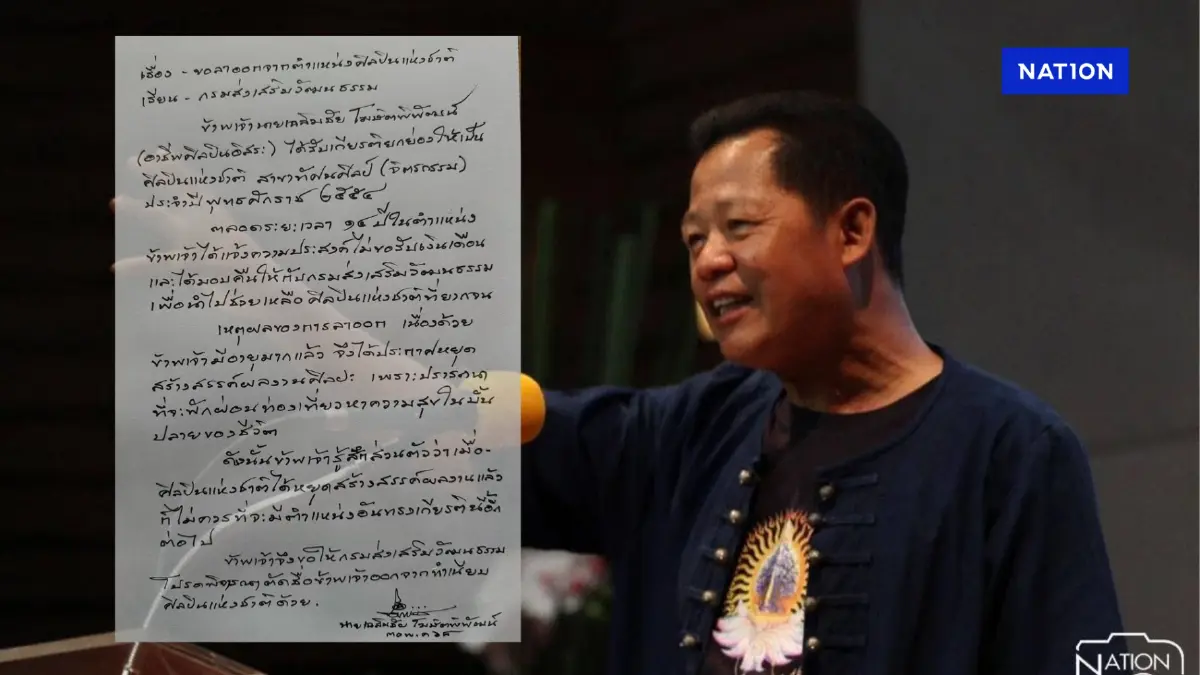 NATION
เรื่อง - ขอลาออกจากตำแหน่งศิลปินแห่งชาติ
เรียน - กรมส่งเสริมวัฒนธรรม
ข้าพเจ้านายเฉลิมชัย โฆษิตพิพัฒน์
(อาชีพศิลปินอิสระ) ได้รับเกียรติยกย่องให้เป็น
ศิลปินแห่งชาติ สาขาทัศนศิลป์ (จิตรกรรม)
ประจำปีพุทธศักราช ๒๕๕๔
ตลอดระยะเวลา ๑๔ ปีในตำแหน่ง
ข้าพเจ้าได้แจ้งความประสงค์ไม่ขอรับเงินเดือน
และได้มอบคืนให้กับกรมส่งเสริมวัฒนธรรม
เพื่อนำไปช่วยเหลือศิลปินแห่งชาติที่ยากจน
เหตุผลของการลาออก เนื่องด้วย
ข้าพเจ้ามีอายุมากแล้ว จึงได้ประกาศหยุด
สร้างสรรค์ผลงานศิลปะ เพราะปรารถนา
ที่จะพักผ่อนท่องเที่ยวหาความสุขในบั้น
ปลายของชีวิต
ดังนั้นข้าพเจ้ารู้สึกส่วนตัวว่าเมื่อ-
ศิลปินแห่งชาติได้หยุดสร้างสรรค์ผลงานแล้ว
ก็ไม่ควรที่จะมีตำแหน่งอันทรงเกียรตินี้อีก
ต่อไป
ข้าพเจ้าจึงขอให้กรมส่งเสริมวัฒนธรรม
โปรดพิจารณาตัดชื่อข้าพเจ้าออกจากทำเนียบ
ศิลปินแห่งชาติด้วย.
นายเฉลิมชัย โฆษิตพิพัฒน์
NATION